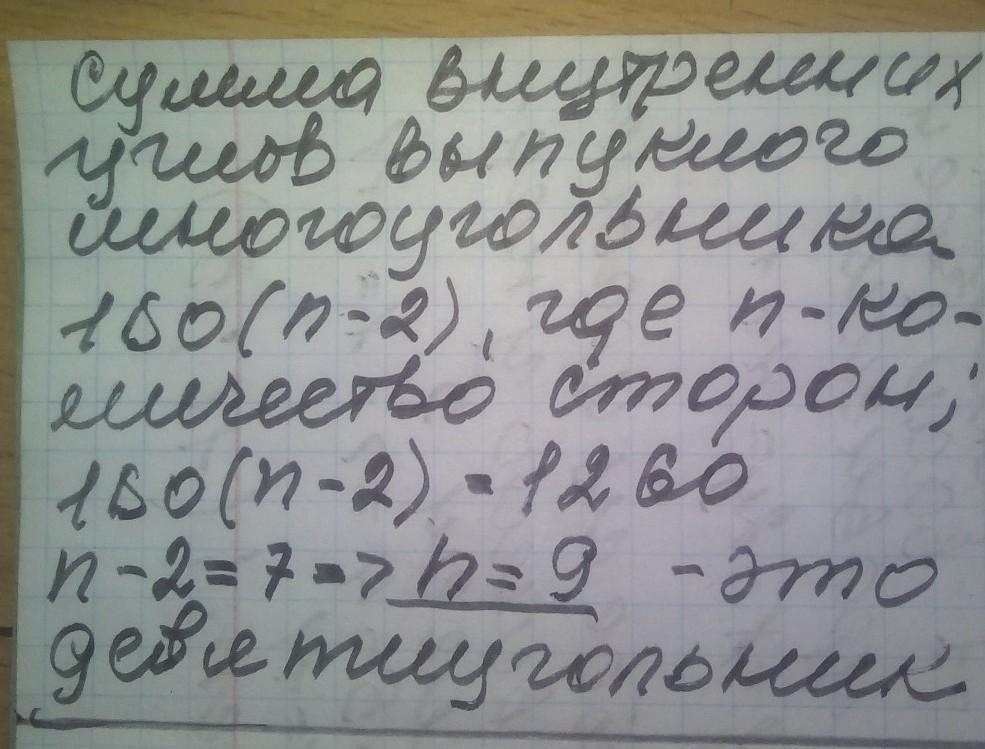 Сумма внутренних
углов выпуклого
многоугольника
180(n-2), где n-ко-
личество сторон;
180(n-2)=1260
n-2=7=> n=9 -это
девятиугольник